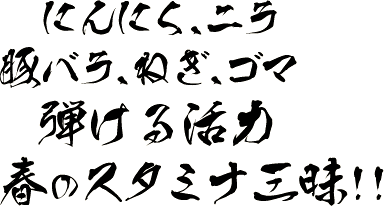 にんにく、ニラ
豚バラ、ねぎ、ゴマ
弾ける活力
春のスタミナ三昧!!